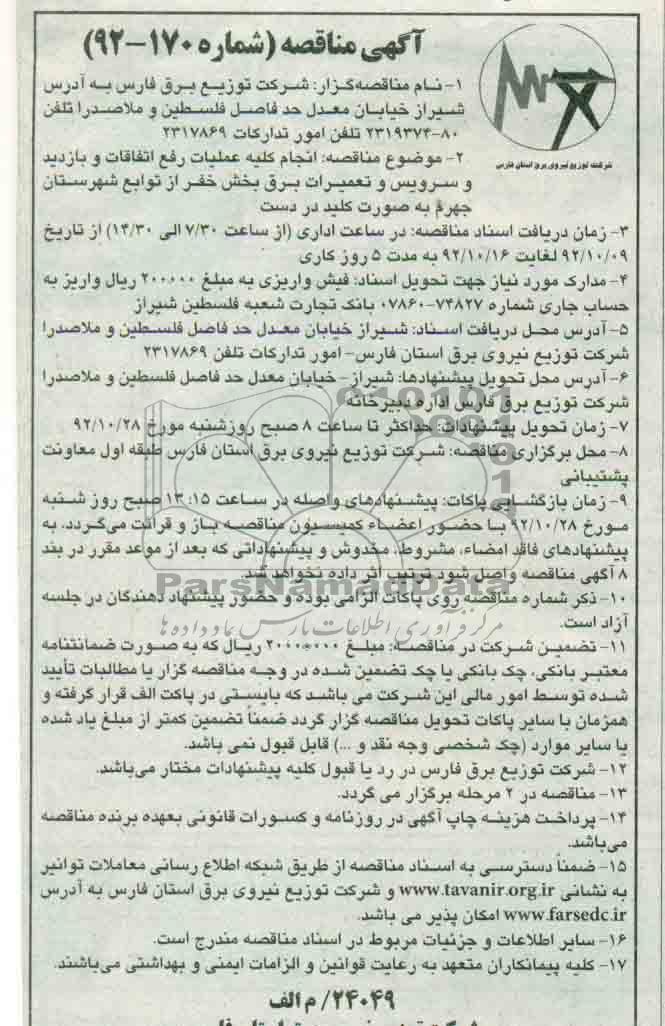 آگهی مناقصه (شماره ۱۷۰-۹۲)
شرکت توزیع نیروی برق استان فارس
۱- نام مناقصه‌گزار: شرکت توزیع برق فارس به آدرس
شیراز خیابان معدل حد فاصل فلسطین و ملاصدرا تلفن
۸۰-۲۳۱۹۳۷۴ تلفن امور تدارکات ۲۳۱۷۸۶۹
۲- موضوع مناقصه: انجام کلیه عملیات رفع اتفاقات و بازدید
و سرویس و تعمیرات برق بخش خفر از توابع شهرستان
جهرم به صورت کلید در دست
۳- زمان دریافت اسناد مناقصه: در ساعت اداری (از ساعت ۷/۳۰ الی ۱۴/۳۰) از تاریخ
۹۲/۱۰/۰۹ لغایت ۹۲/۱۰/۱۶ به مدت ۵ روز کاری
۴- مدارک مورد نیاز جهت تحویل اسناد: فیش واریزی به مبلغ ۲۰۰۰۰۰ ریال واریز به
حساب جاری شماره ۷۴۸۲۷-۰۷۸۶۰ بانک تجارت شعبه فلسطین شیراز
۵- آدرس محل دریافت اسناد: شیراز خیابان معدل حد فاصل فلسطین و ملاصدرا
شرکت توزیع نیروی برق استان فارس- امور تدارکات تلفن ۲۳۱۷۸۶۹
۶- آدرس محل تحویل پیشنهادها: شیراز - خیابان معدل حد فاصل فلسطین و ملاصدرا
شرکت توزیع برق فارس اداره دبیرخانه
۷- زمان تحویل پیشنهادات: حداکثر تا ساعت ۸ صبح روز شنبه مورخ ۹۲/۱۰/۲۸
۸- محل برگزاری مناقصه: شرکت توزیع نیروی برق استان فارس طبقه اول معاونت
پشتیبانی
۹- زمان بازگشایی پاکات: پیشنهادهای واصله در ساعت ۱۳:۱۵ صبح روز شنبه
مورخ ۹۲/۱۰/۲۸ با حضور اعضاء کمیسیون مناقصه باز و قرائت می‌گردد. به
پیشنهادهای فاقد امضاء، مشروط، مخدوش و پیشنهاداتی که بعد از موعد مقرر در بند
۸ آگهی مناقصه واصل شود ترتیب اثر داده نخواهد شد.
ParsNamadData
۱۰- ذکر شماره مناقصه روی پاکات الزامی بوده و حضور پیشنهاد دهندگان در جلسه
آزاد است.
مرکز فرآوری اطلاعات پارس نماد داده ها
۱۱- تضمین شرکت در مناقصه: مبلغ ۲۰۰۰۰۰۰۰ ریال که به صورت ضمانتنامه
معتبر بانکی، چک بانکی یا چک تضمین شده در وجه مناقصه گزار یا مطالبات تأیید
شده توسط امور مالی این شرکت می باشد که بایستی در پاکت الف قرار گرفته و
همزمان با سایر پاکات تحویل مناقصه گزار گردد ضمناً تضمین کمتر از مبلغ یاد شده
یا سایر موارد (چک شخصی وجه نقد و ...) قابل قبول نمی باشد.
۱۲- شرکت توزیع برق فارس در رد یا قبول کلیه پیشنهادات مختار می‌باشد.
۱۳- مناقصه در ۲ مرحله برگزار می گردد.
۱۴- پرداخت هزینه چاپ آگهی در روزنامه و کسورات قانونی بعهده برنده مناقصه
می‌باشد.
۱۵- ضمناً دسترسی به اسناد مناقصه از طریق شبکه اطلاع رسانی معاملات توانیر
به نشانی www.tavanir.org.ir و شرکت توزیع نیروی برق استان فارس به آدرس
www.farsedc.ir امکان پذیر می باشد.
۱۶- سایر اطلاعات و جزئیات مربوط در اسناد مناقصه مندرج است.
۱۷- کلیه پیمانکاران متعهد به رعایت قوانین و الزامات ایمنی و بهداشتی می‌باشند.
۲۴۰۴۹/ م الف